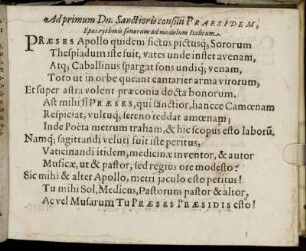 Ad primum Dn. Sanctioris consilii PRAESIDEM,
Epos rythmis sonorum ad modulum Italicum.
PRÆSES Apollo quidem fictus pictusq; Sororum
Thespiadum iste fuit, vates unde instet avenam,
Atq; Caballinus spargat soni undiq; venam,
Toto ut in orbe queant cantarier arma virorum,
Et super astra volent præconia docta bonorum.
Ast mihi si PRÆSES, qui sanctior, hancce Camœnam
Respiciat, vultuq; sereno reddat amœnam;
Inde Poëta metrum traham, & hic scopus esto laborũ.
Namq; sagittandi veluti fuit iste peritus,
Vaticinandi itidem, medicinæ inventor, & autor
Musicæ, ut & pastor, sed regius ore modesto:
Sic mihi & alter Apollo, metri jaculo esto peritus!
Tu mihi Sol, Medicus, Pastorum pastor & altor,
Ac vel Musarum TU PRÆSES PRÆSIDIS esto!